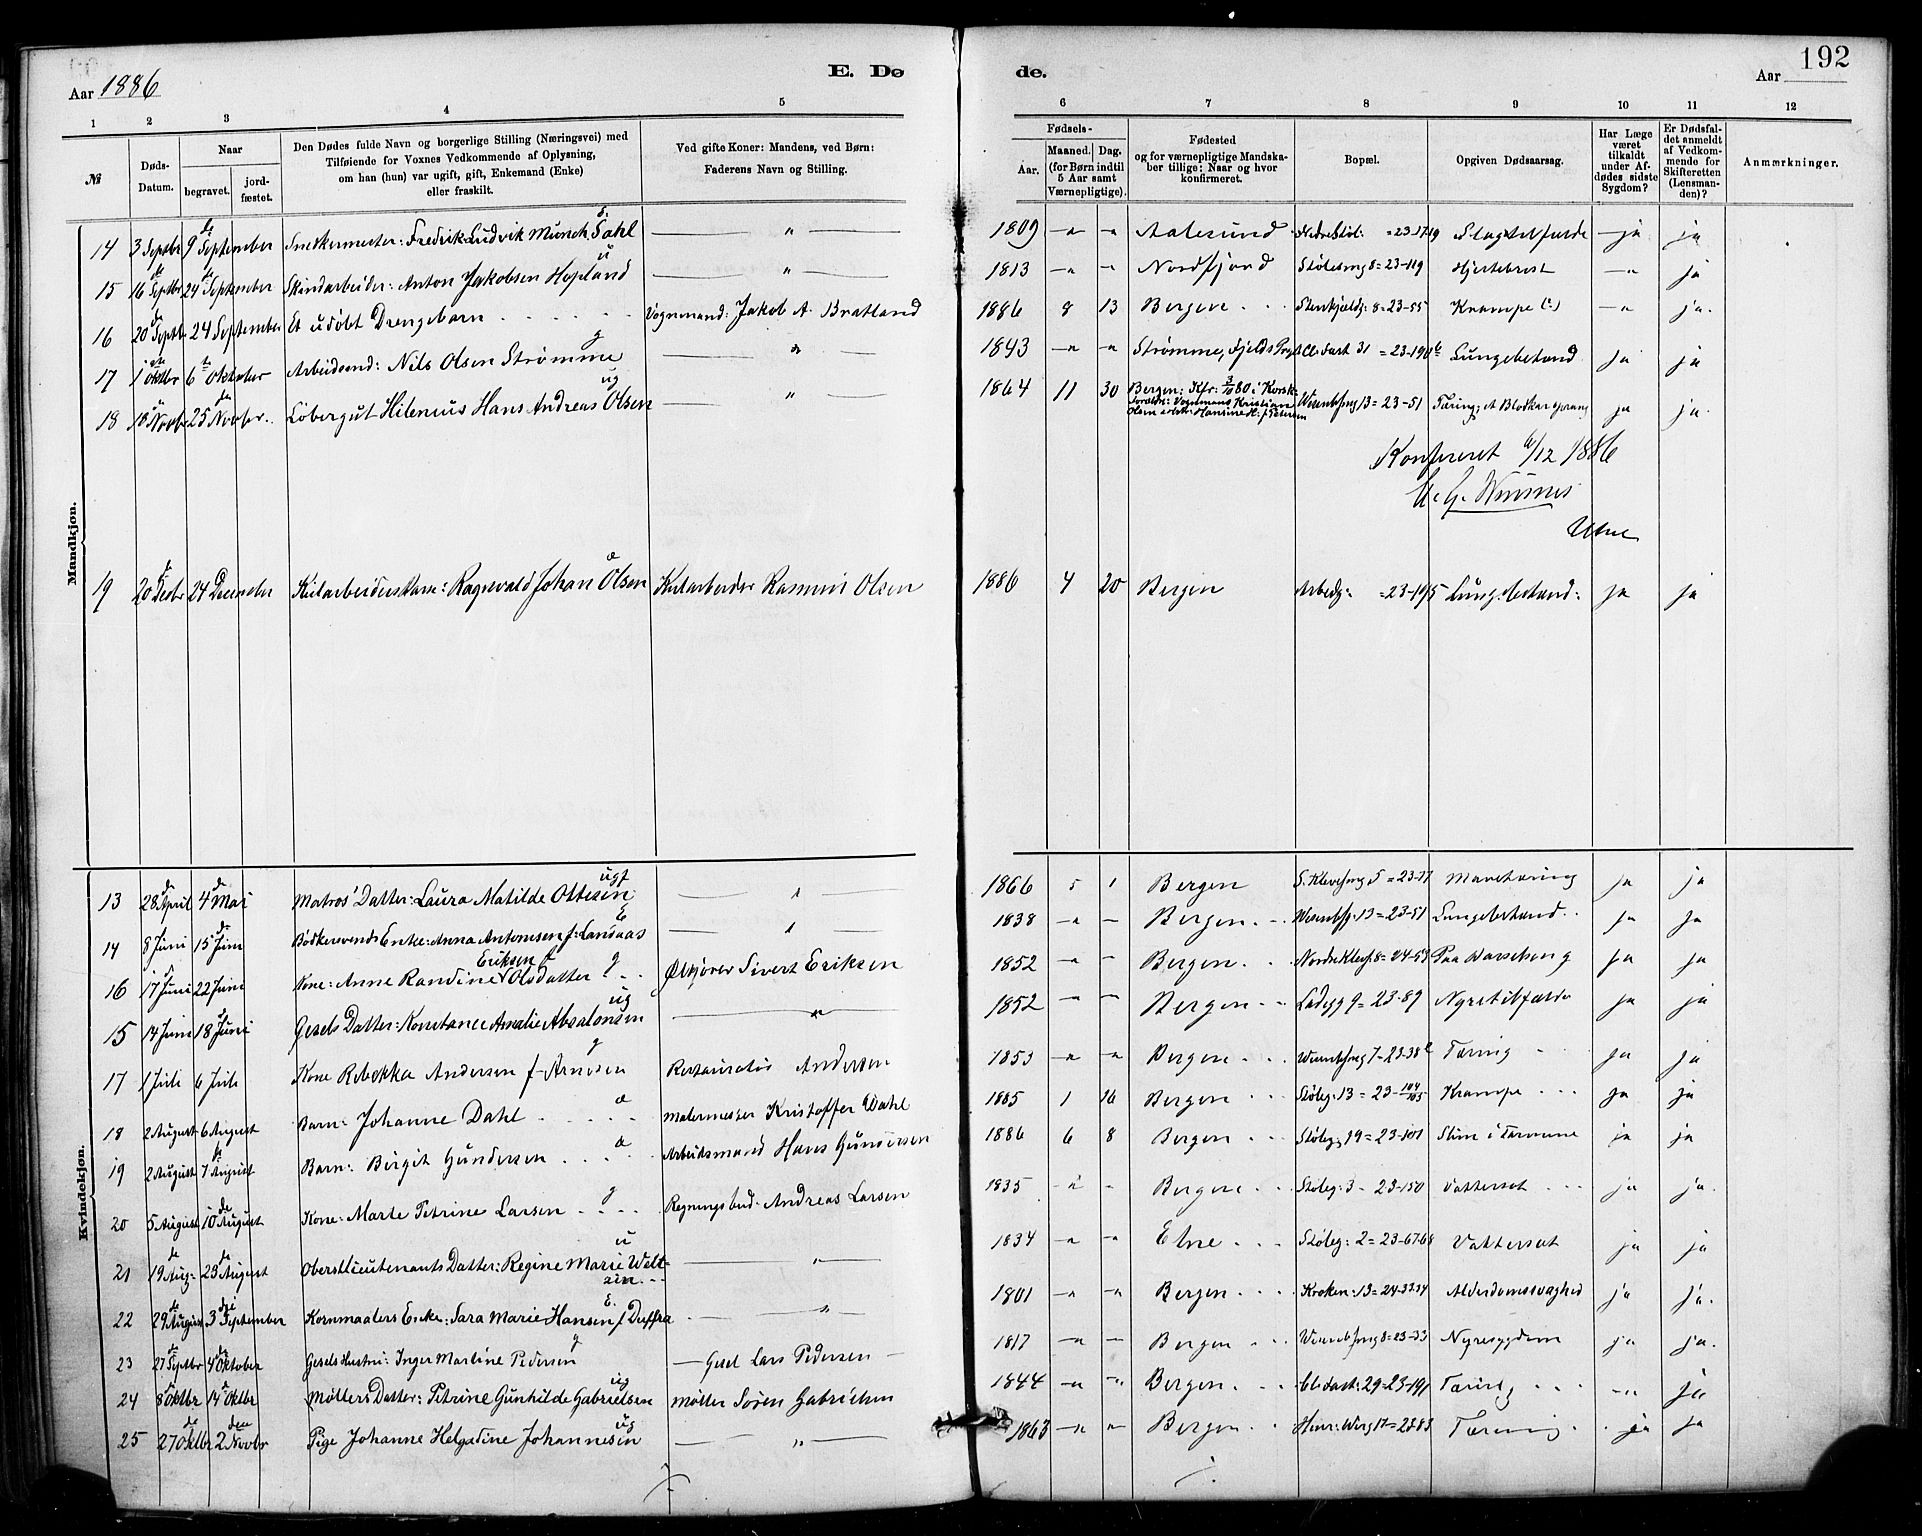 Aar 1886
E. Dø
de.
192
Aar
1 2 3 4 5 6 7 8 9 10 11 12
№
Døds-Datum.
Naar
begravet.
jord-fæstet.
Den Dødes fulde Navn og borgerlige Stilling (Næringsvei) med
Tilføiende for Voxnes Vedkommende af Oplysning,
om han (hun) var ugift, gift, Enkemand (Enke)
eller fraskilt.
Ved gifte Koner: Mandens, ved Børn:
Faderens Navn og Stilling.
Fødsels-
Aar.
Maaned. Dag.
(for Børn indtil
5 Aar samt
Værnepligtige).
Fødested
og for værnepligtige Mandska-
ber tillige: Naar og hvor
konfirmeret.
Bopæl.
Opgiven Dødsaarsag.
Har Læge
været
tilkaldt
under Af-
dødes sidste
Sygdom?
Er Dødsfal-
det anmeldt
af Vedkom-
mende for
Skifteretten
(Lensman-
den)?
Anmærkninger.
Mandkjøn.
14 3 Septbr 9de September Snekermester: Fredrik Ludvik Münch Dahl — " — 1809 " " Aalesund 23-1719 Slagtilfælde ja ja
15 16de Septbr 24de September Skindarbeider: Anton Jakobsen Hopland u — " — 1813 " " Nordfjord Stølesmg 8=23-119 Hjertebrost " ja
16 20de Septbr 24 September Et udöbt Drengebarn Vognmand: Jakob A. Bratland 1886 8 13 Bergen 8=23-55 Krampe (:) " ja.
17 1ste Oktbr 6te Oktober Arbeidsmd: Nils Olsen Strømme g — " — 1843 " " Strømme, Fjelds Prgld 31 = 23-190b Lungebetænd ja ja
18 18 Novbr 25de Novbr. Löbergut Hilenius Hans Andreas Olsen ug — " — 1864 11 30 Bergen: Kfr: 80 i Korsk: Foreldr: Vognmand Kristian Olsen 13=23-51 Tæring: ja ja.
Konfereret 6/12 1886
19 20de Decbr 24 December Kularbeiderskarn: Ragnvald Johan Olsen Kularbeider Rasmus Olsen 1886 4 20 Bergen Arbedg: =23-1015 Lungebetænd: ja ja
Kvindekjøn.
13 28de April 4de Mai Matros' Datter: Laura Matilde Ottesen ugf — " — 1866 5 1 Bergen S. Klevesmg 5 = 23-77 Mavetæring ja ja
14 8 Juni 15de Juni Bödkersvends Enke: Anna Antonisen f: Landaas E — " — 1838 " — Bergen. 13=23-51 Lungebetænd.. ja ja
16 17de Juni 22 Juni Kone: Anne Randine Eriksen f Olsdatter g Ølkjører Sivert Eriksen 1852 " — Bergen. Nordre Klevs: 8=24-59 Paa Barselseng ja ja
15 14 Juni 18de Juni Gesels Datter: Konstance Amalie Absalonsen ug — " — 1852 " — Bergen Ladegg 9=23-89 Nyretilfælde ja ja
17 1 Juli 6 Juli Kone Rebekka Andersen f. Arnesen g Restauratör Andersen 1853 " " Bergen 7=23-38 Tæring ja ja
18 2 August 6 August Barn: Johanne Dahl Malermester Kristoffer Dahl 1885 1 16 Bergen Støleg: 13 = 23-104/105 Krampe ja ja
19 2 August 7de August Barn: Birgit Gundersen Arbeidsmand Hans Gundersen 1886 6 8 Bergen Støleg: 19=23-101 Slim i Tarmene ja ja
20 5 August 10de August Kone: Marte Petrine Larsen g Regningsbud: Andreas Larsen 1835 " " Bergen Støleg: 3 - 23-150 Vattersot ja ja.
21 19de Aug: 23de August Oberstlieutenants Datter: Regine Marie Welt-zin u — " — 1834 " " Etne Støleg: 2=23-67-68 Vattersot ja ja
22 29de August 3die September Kornmaalers Enke: Sara Marie Hansen f Duffra E. — " — 1801 " " Bergen Kroken: 13=24-33.34 Alderdomssvaghed ja ja.
23 27 Septbr 4de Oktober Gesels Hustru: Inger Martine Pedersen g — Gesel Lars Pedersen — 1817 " " Bergen 8=23-33 Nyresygdom ja ja.
24 8 Oktbr 14de Oktbr Møllers Datter: Petrine Gunhilde Gabrielsen ug Møller Sören Gabrielsen 1844 " " Bergen. 29=23-191 Tæring " ja
25 27de Oktbr 2den Novbr Pige Johanne Helgadine Johannesen ug — " — 1863 " " Bergen 17=2383 Tæring ja ja